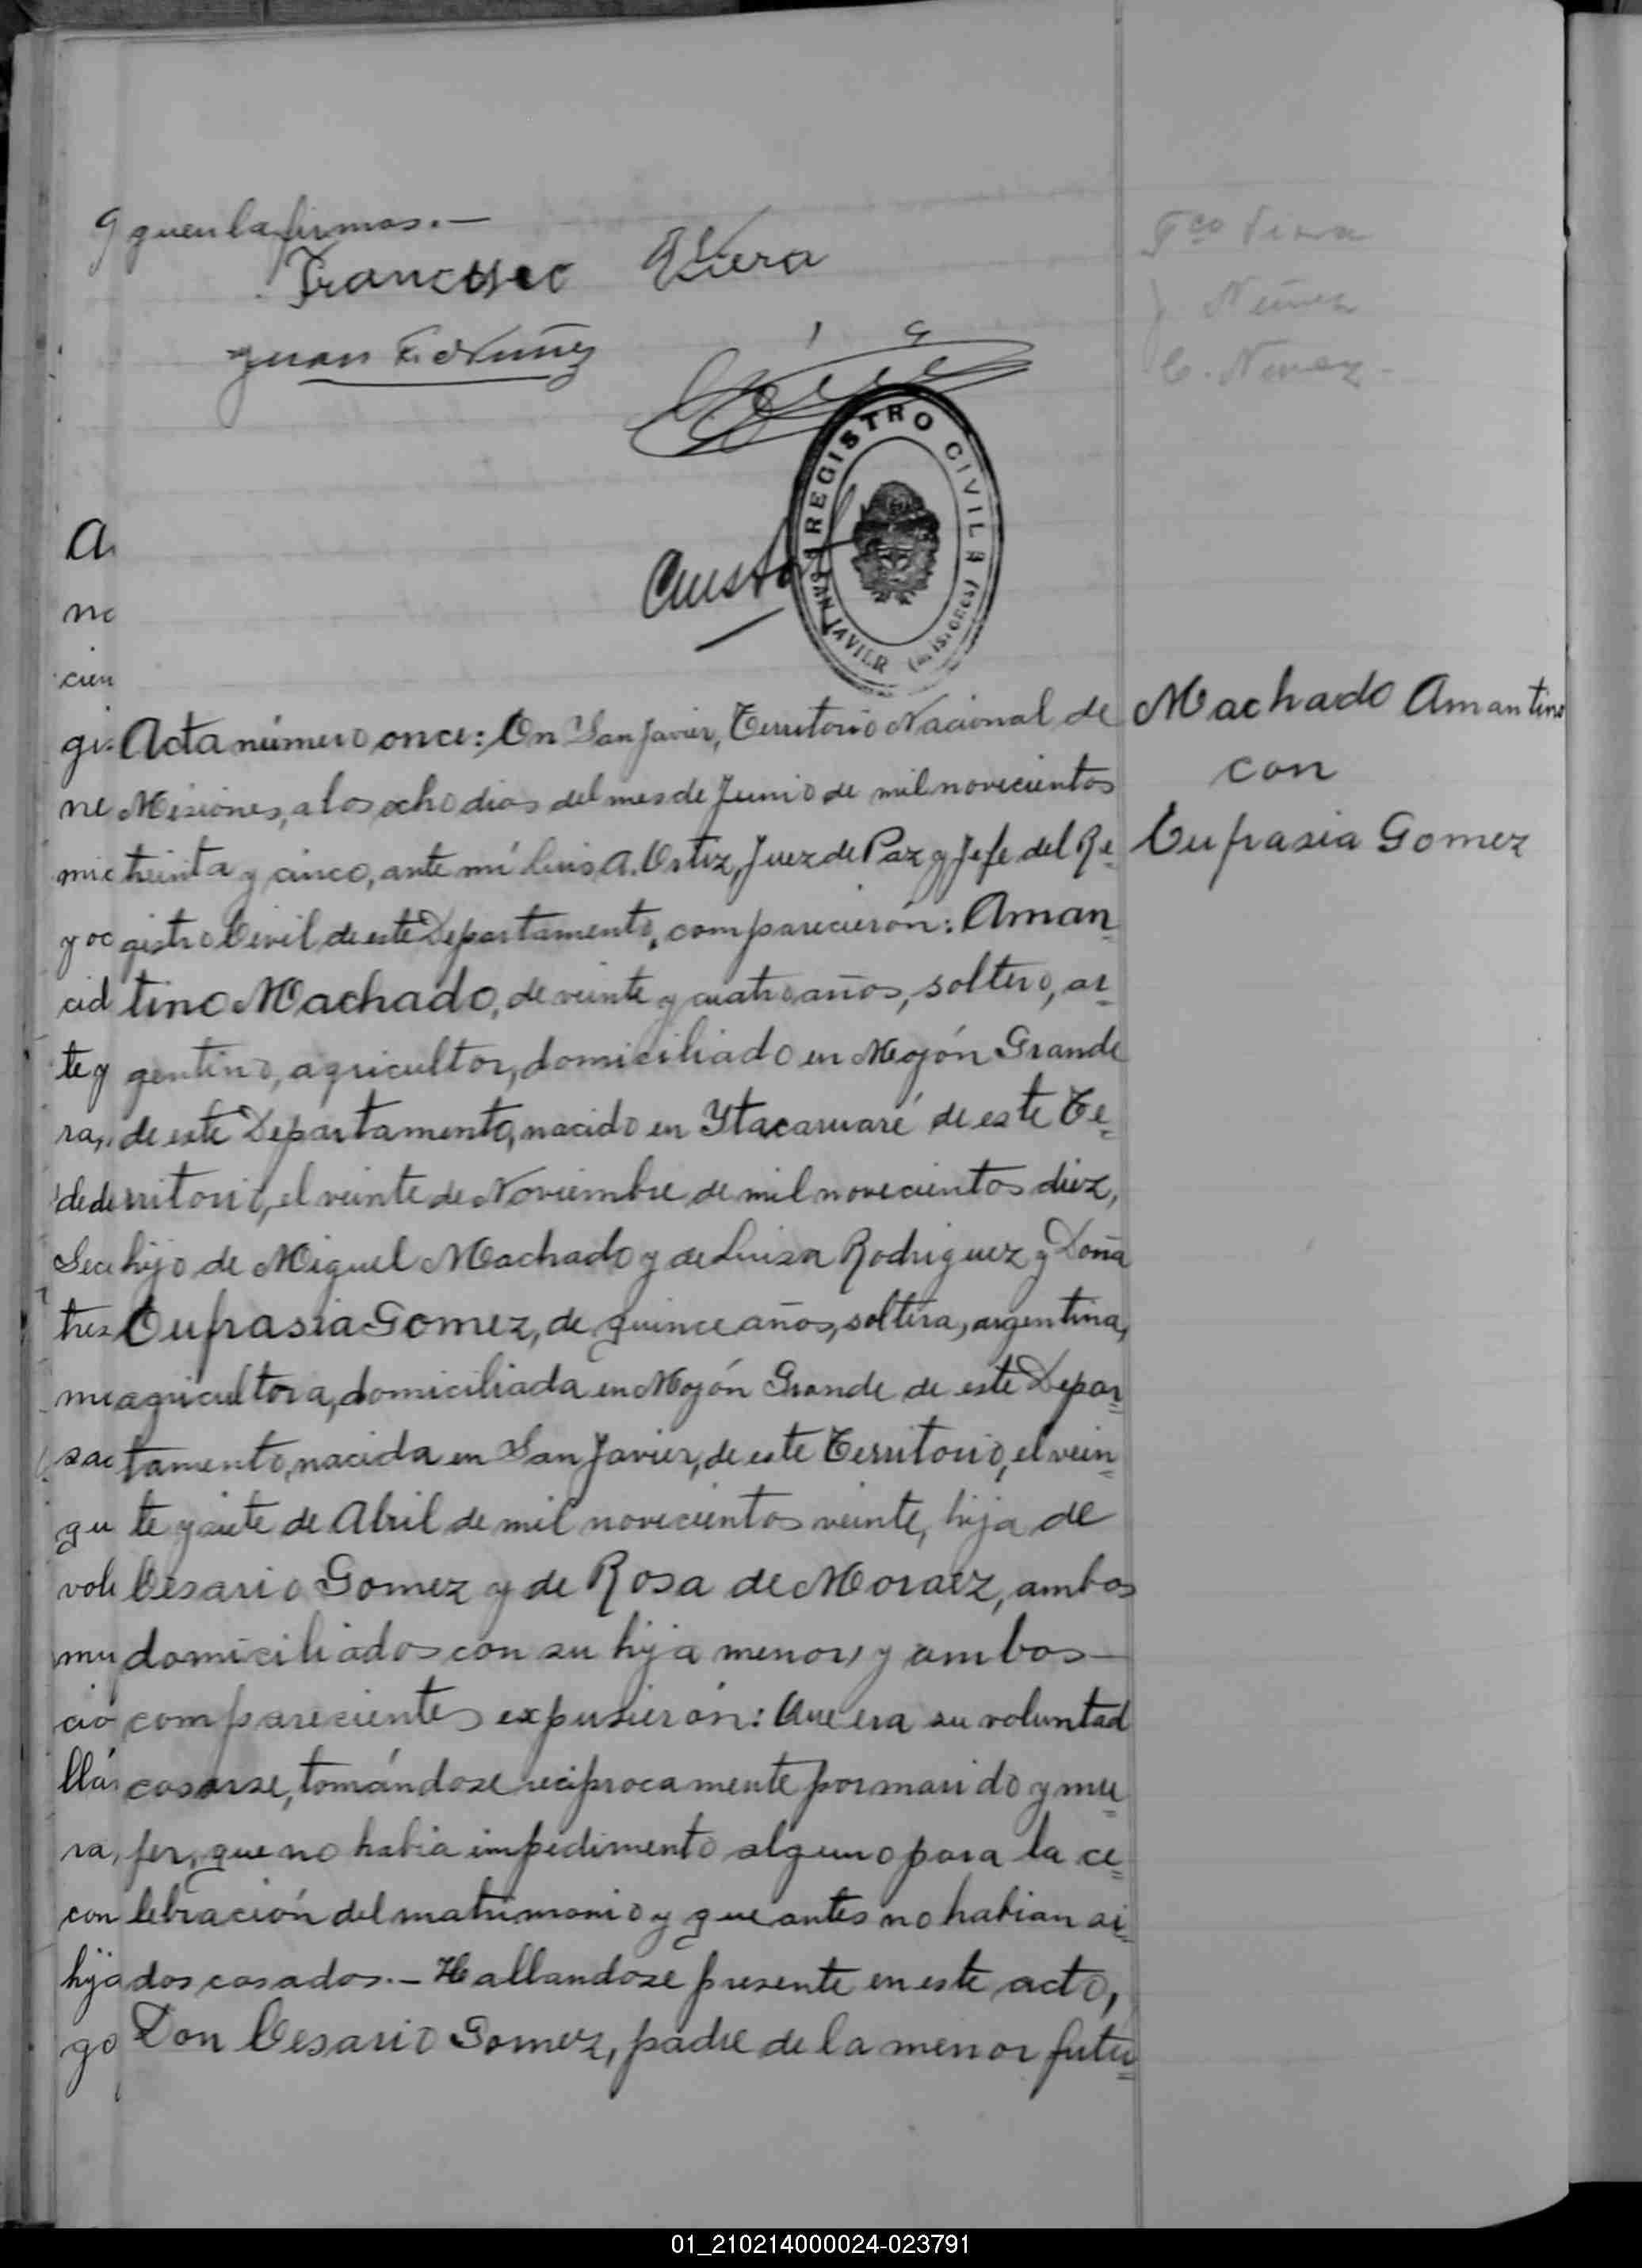 y quen la firmas.—
Francisco Viera
Juan E. Nuñez
REGISTRO CIVIL
SAN JAVIER (Misiones)
Fco Viera
J. Nuñez
C. Nunez
Machado Amantino
con
Eufrasia Gomez
A
no
cien
gis
ne
mic
y oc
cid
te y
ra,
de de
Sec
tres
me
sac
gu
vol
mu
ció
llá
ra,
con
hija
go
Acta número once: En San Javier, Territorio Nacional de
Misiones, a los ocho dias del mes de Junio de mil novecientos
treinta y cinco, ante mí Luis A. Ortiz, Juez de Paz y Jefe del Re=
gistro Civil de este Departamento, comparecieron: Aman=
tino Machado, de veinte y cuatro años, soltero, ar=
gentino, agricultor, domiciliado en Mojón Grande
de este Departamento, nacido en Ytacaruaré de este Te=
rritorio, el veinte de Noviembre de mil novecientos diez,
hijo de Miguel Machado y de Luisa Rodriguez y Doña
Eufrasia Gomez, de quince años, soltera, argentina,
agricultora, domiciliada en Mojón Grande de este Depar=
tamento, nacida en San Javier, de este Territorio, el vein=
te y siete de Abril de mil novecientos veinte, hija de
Cesario Gomez y de Rosa de Moraez, ambos
domiciliados con su hija menor, y ambos—
comparecientes expusieron: Que era su voluntad
casarse, tomándose reciprocamente por marido y mu=
jer, que no habia impedimento alguno para la ce=
lebración del matrimonio y que antes no habian si=
dos casados.— Hallandose presente en este acto,
Don Cesario Gomez, padre de la menor futu=
01_210214000024-023791